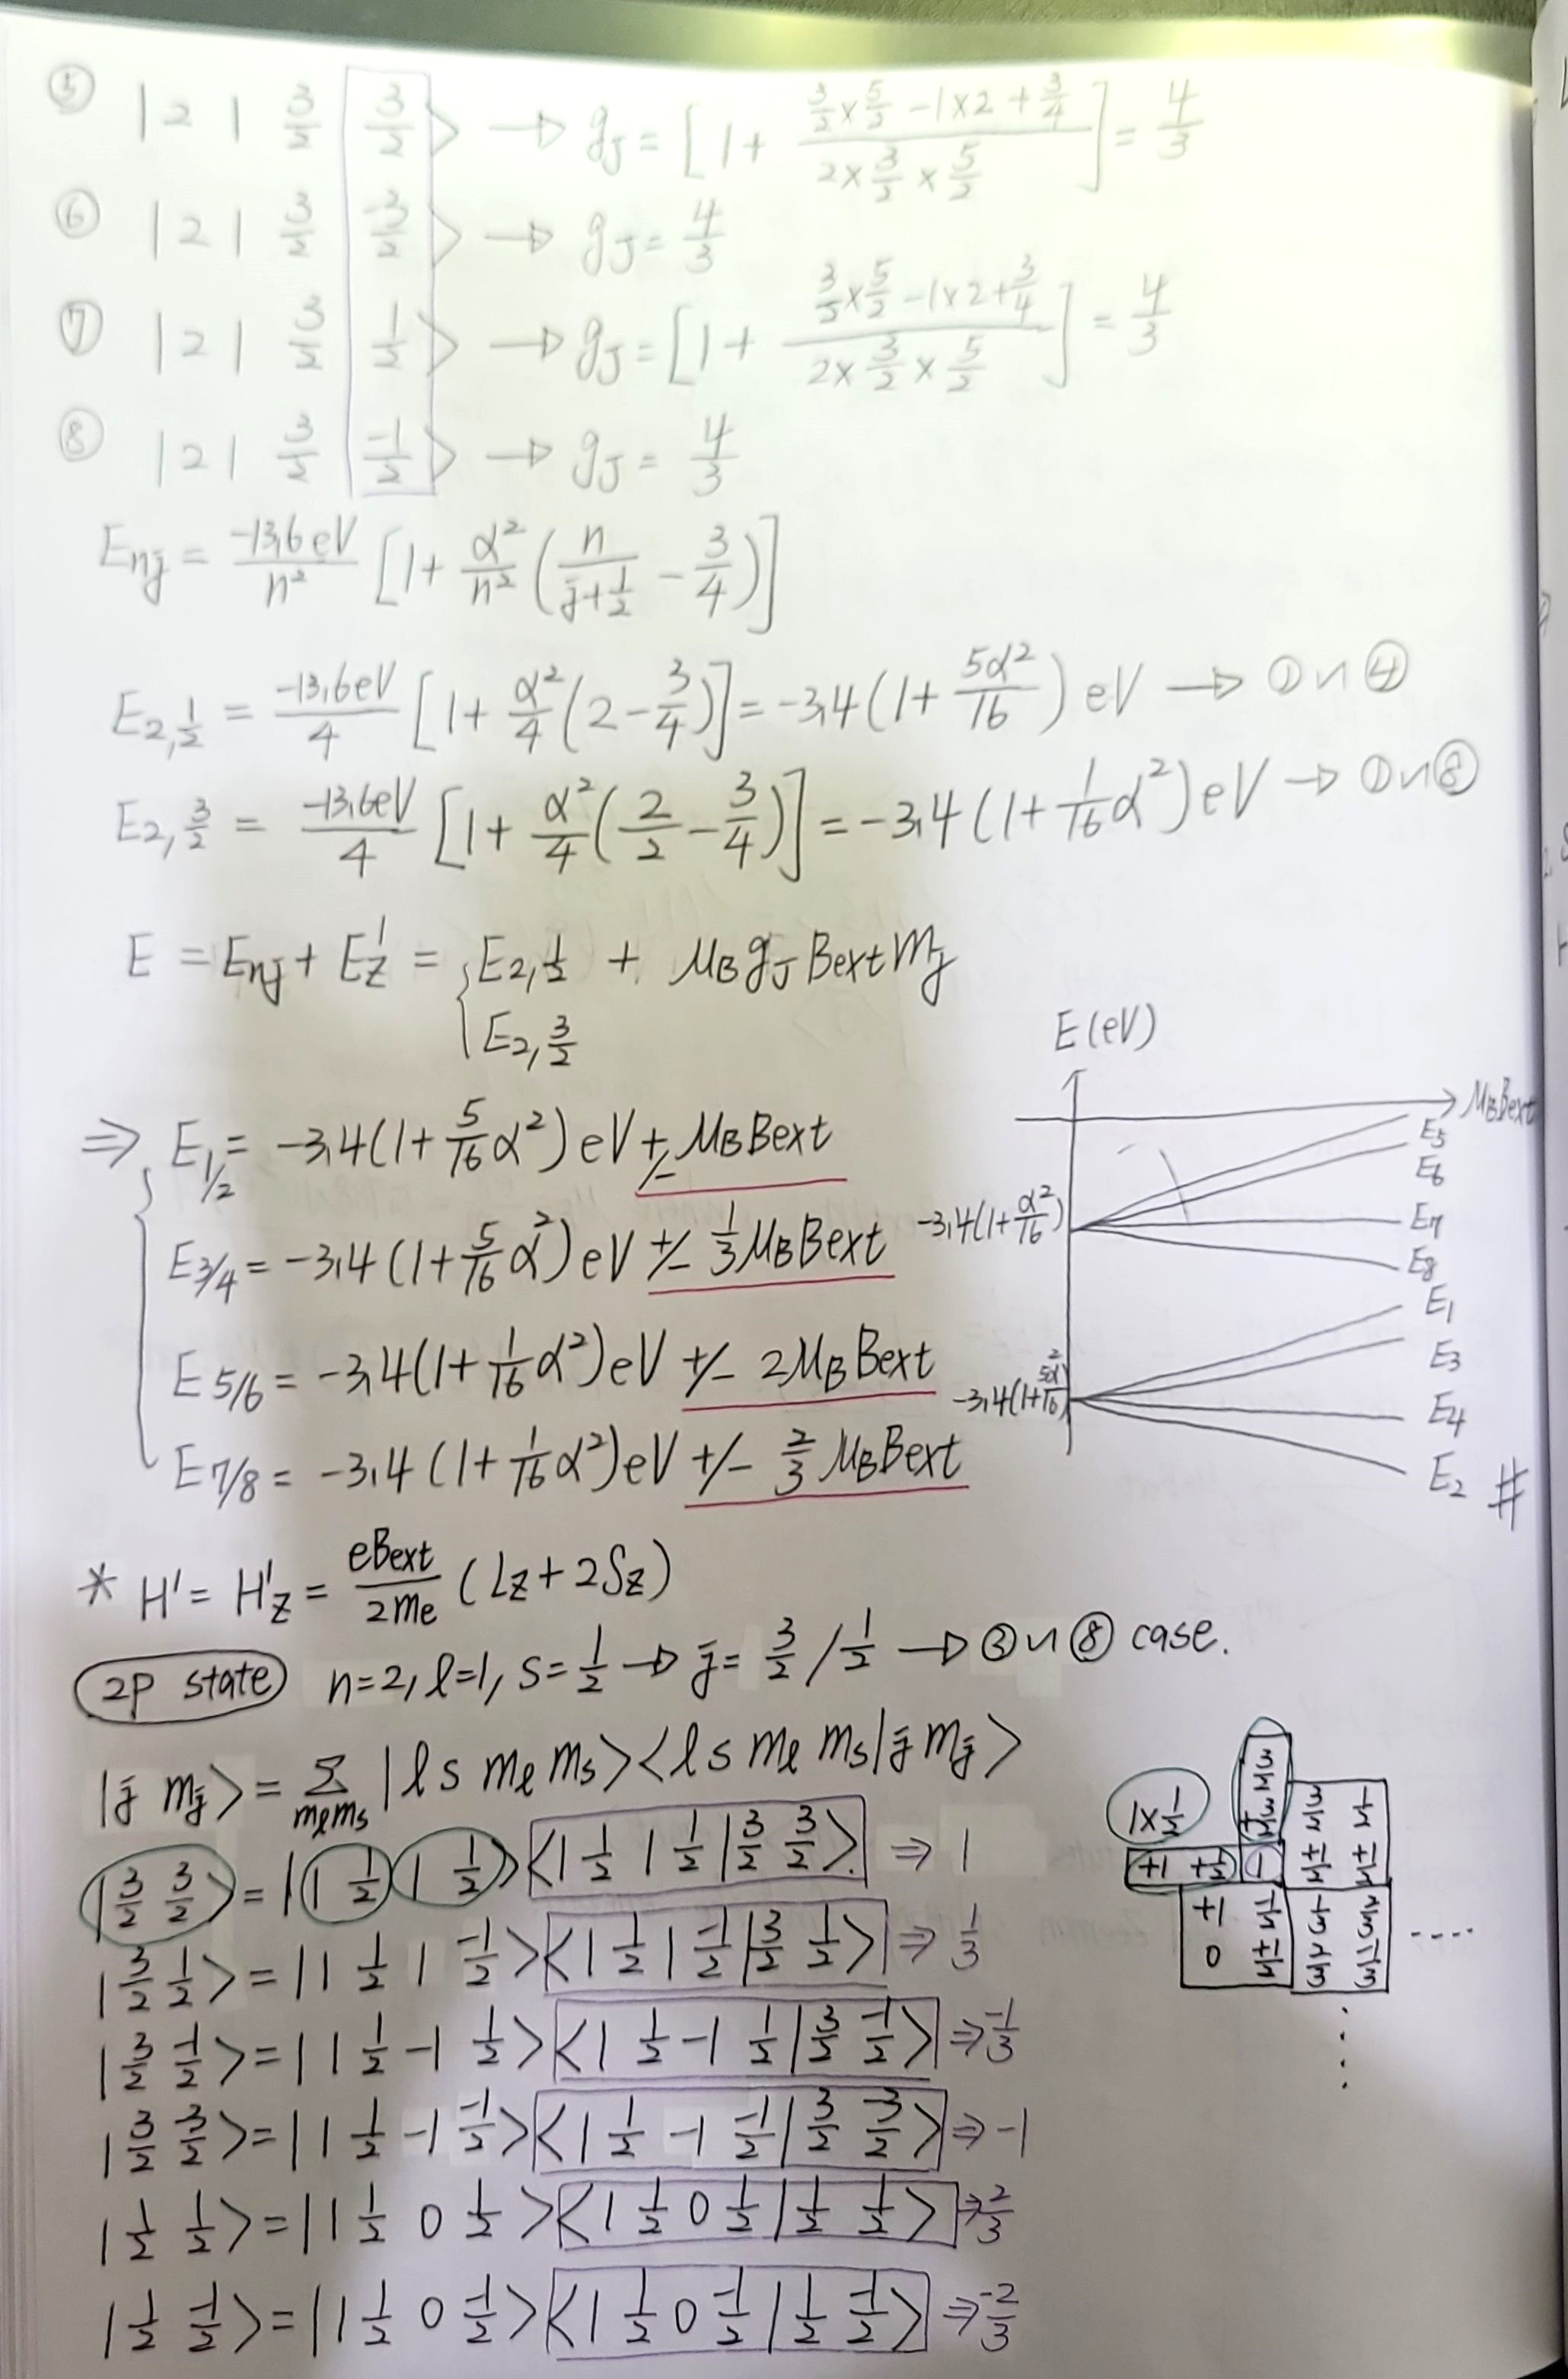 ⑤ |2 1 3/2 3/2> → gJ = [1 + (3/2×5/2 -1×2 + 3/4)/(2×3/2×5/2)] = 4/3
⑥ |2 1 3/2 -3/2> → gJ = 4/3
⑦ |2 1 3/2 1/2> → gJ = [1 + (3/2×5/2 -1×2+3/4)/(2×3/2×5/2)] = 4/3
⑧ |2 1 3/2 -1/2> → gJ = 4/3
Enj = -13.6eV/n² [1+ α²/n² (n/(j+1/2) - 3/4)]
E2,1/2 = -13.6eV/4 [1+ α²/4 (2-3/4)] = -3.4(1+ 5α²/16) eV → ①~④
E2,3/2 = -13.6eV/4 [1+ α²/4 (2/2 - 3/4)] = -3.4(1+ 1/16 α²) eV → ①~⑧
E = Enj + E¹Z = { E2,1/2 + μB gJ Bext mj
E2,3/2
⇒ { E1/2 = -3.4(1+ 5/16 α²) eV +/- μB Bext
E3/4 = -3.4(1+ 5/16 α²) eV +/- 1/3 μB Bext
E5/6 = -3.4(1+ 1/16 α²) eV +/- 2μB Bext
E7/8 = -3.4(1+ 1/16 α²) eV +/- 2/3 μB Bext
E (eV)
μB Bext
E5
E6
-3.4(1+ α²/16)
E7
E8
E1
E3
-3.4(1+ 5α²/16)
E4
E2 #
* H' = H'Z = eBext/2me (Lz + 2Sz)
2P state n=2, l=1, s=1/2 → j= 3/2 / 1/2 → ③~⑧ case.
|j mj> = Σ ml ms |l s ml ms><l s ml ms|j mj>
|3/2 3/2> = |1 1/2 1 1/2><1 1/2 1 1/2|3/2 3/2> ⇒ 1
|3/2 1/2> = |1 1/2 1 -1/2><1 1/2 1 -1/2|3/2 1/2> ⇒ 1/3
|3/2 -1/2> = |1 1/2 -1 1/2><1 1/2 -1 1/2|3/2 -1/2> ⇒ -1/3
|3/2 -3/2> = |1 1/2 -1 -1/2><1 1/2 -1 -1/2|3/2 -3/2> ⇒ -1
|1/2 1/2> = |1 1/2 0 1/2><1 1/2 0 1/2|1/2 1/2> ⇒ 2/3
|1/2 -1/2> = |1 1/2 0 -1/2><1 1/2 0 -1/2|1/2 -1/2> ⇒ -2/3
1×1/2 3/2 +3/2 3/2 1/2
+1 +1/2 1 +1/2 +1/2
+1 -1/2 1/3 2/3 ....
0 +1/2 2/3 -1/3